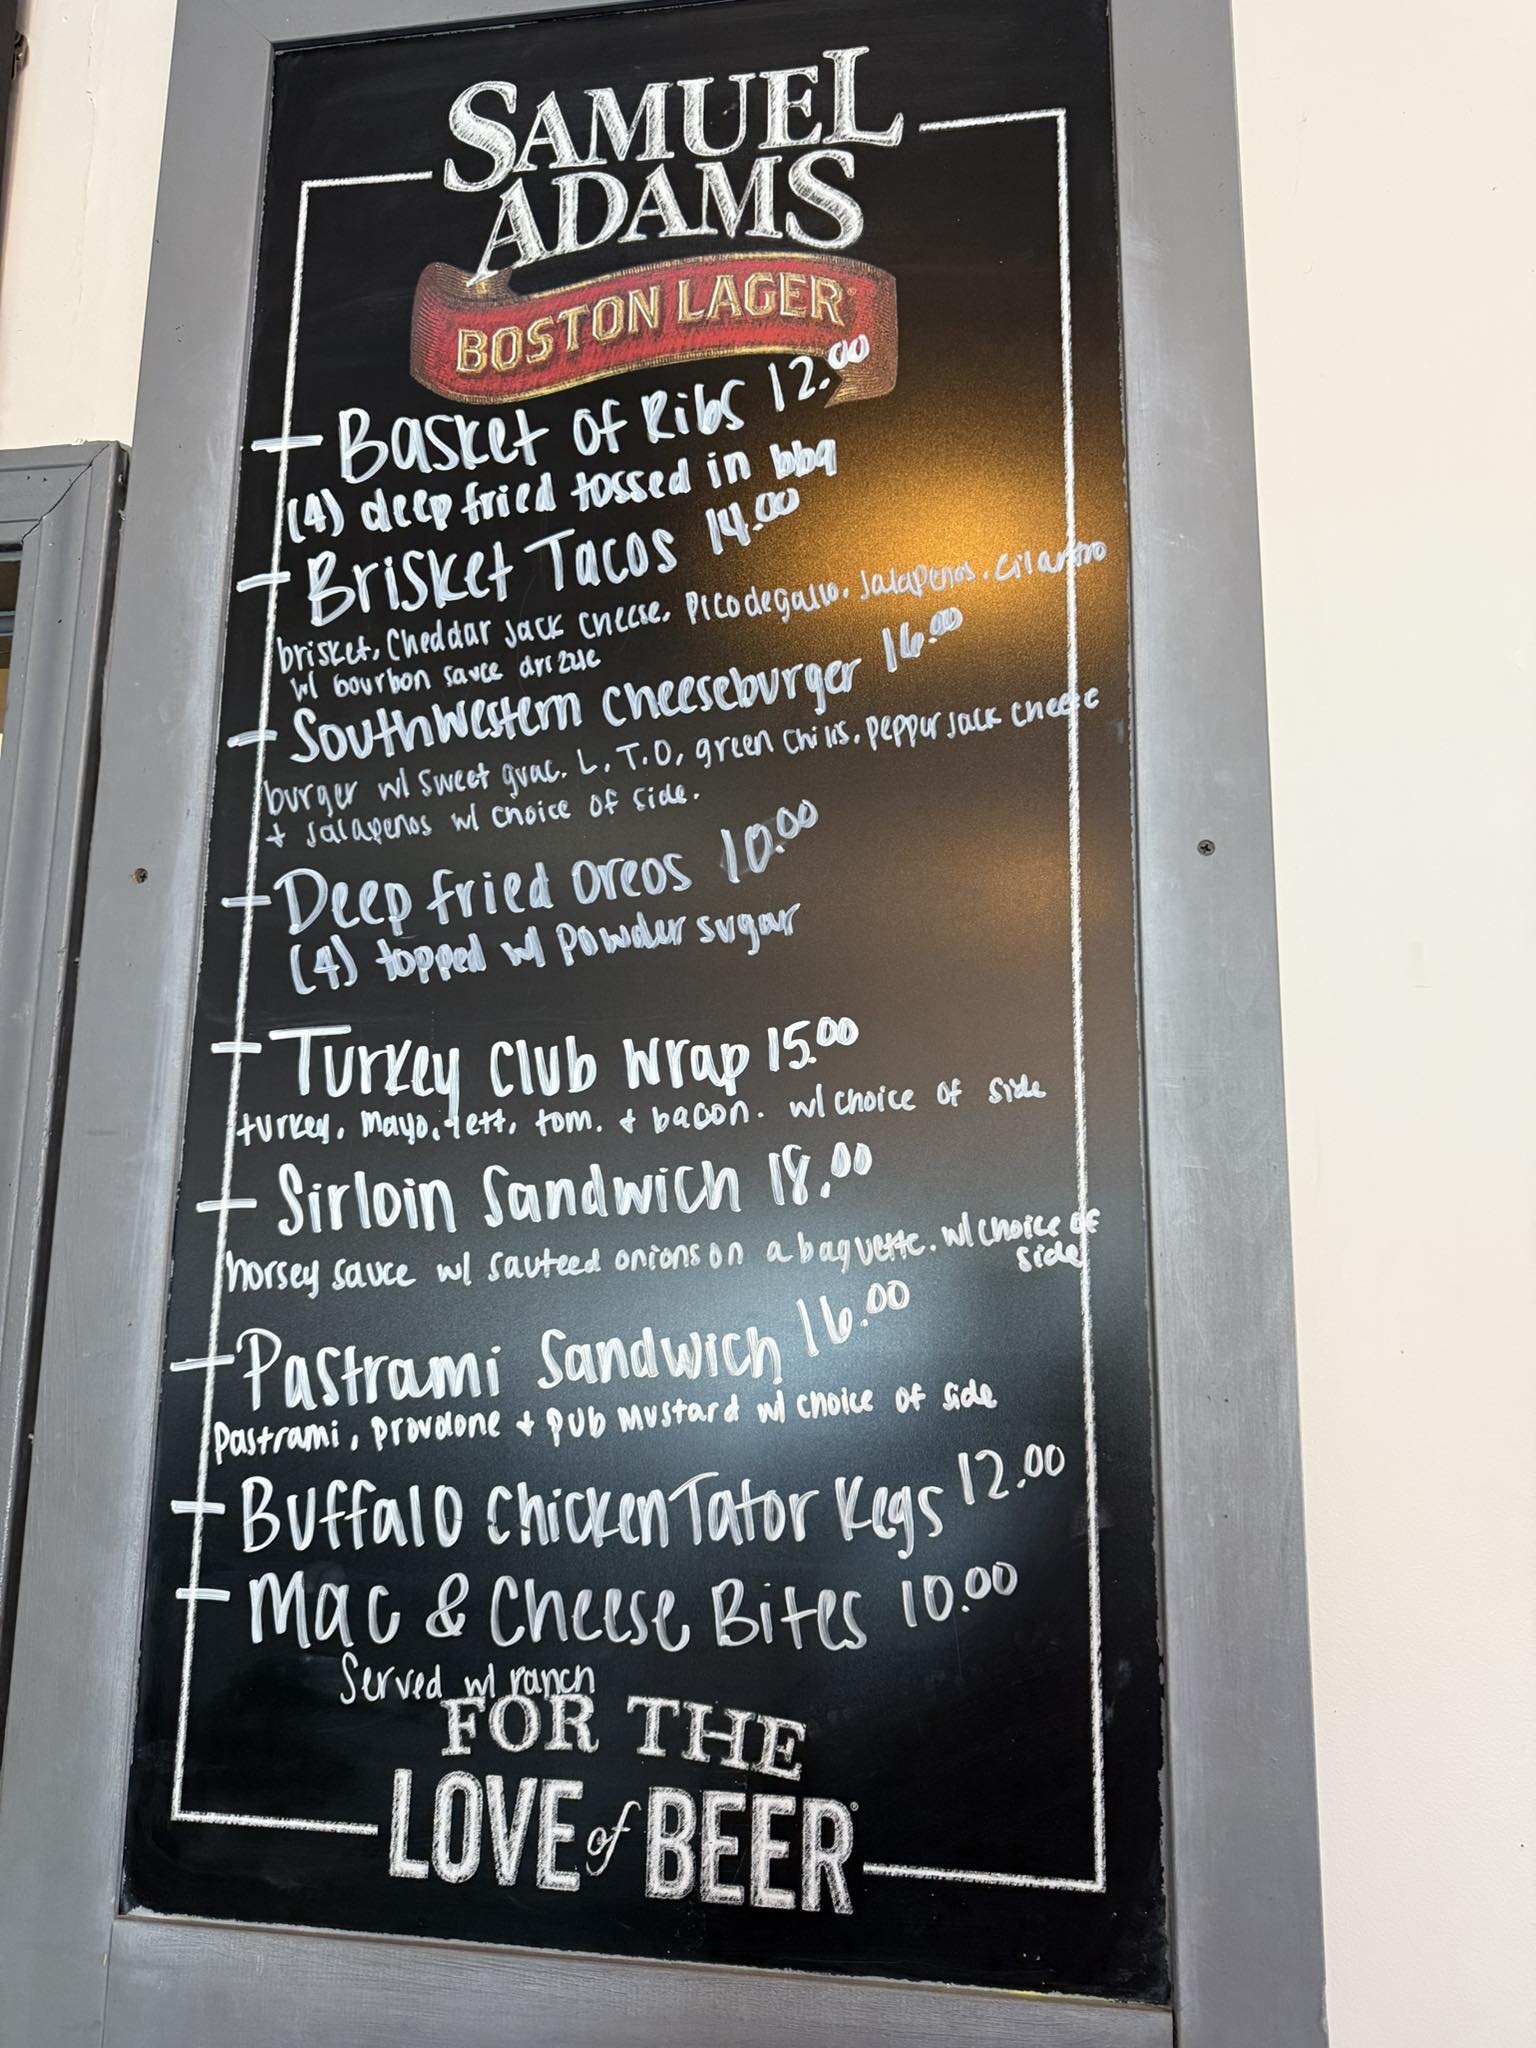 SAMUEL
ADAMS
BOSTON LAGER
- Basket of Ribs 12.00
(4) deep fried tossed in bbq
- Brisket Tacos 14.00
brisket, Cheddar Jack Cheese, Pico de gallo, Jalapenos, Cilantro
w/ bourbon sauce drizzle
- Southwestern Cheeseburger 16.00
burger w/ sweet guac. L, T, O, green chilis, pepper jack cheese
+ Jalapenos w/ choice of side.
- Deep fried Oreos 10.00
(4) topped w/ powder sugar
- Turkey Club Wrap 15.00
turkey, mayo, lett, tom. + bacon. w/ choice of side
- Sirloin Sandwich 18.00
horsey sauce w/ sauteed onions on a baguette. w/ choice of
side
- Pastrami Sandwich 16.00
Pastrami, Provolone + pub mustard w/ choice of side
- Buffalo Chicken Tator Kegs 12.00
- Mac & Cheese Bites 10.00
Served w/ ranch
FOR THE
LOVE of BEER